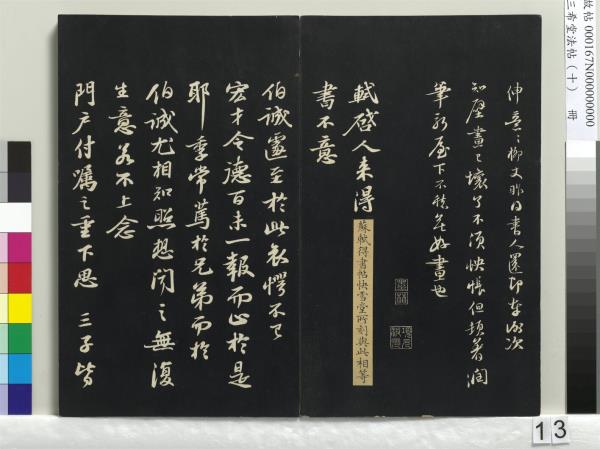 故帖 000167N000000000
三希堂法帖(十) 冊
仲意〻柳丈昨日書人還即奉謝次
知壁畫已壞了不須怏悵但頓著潤
筆新屋下不愁無好畫也
軾啓人來得
書不意
蘇軾得書帖快雪堂所刻與此相等
伯誠遽至於此哀愕不已
宏才令德百未一報而止於是
耶季常篤於兄弟而於
伯誠尤相知照想聞之無復
生意若不上念
門户付囑之重下思 三子皆
13